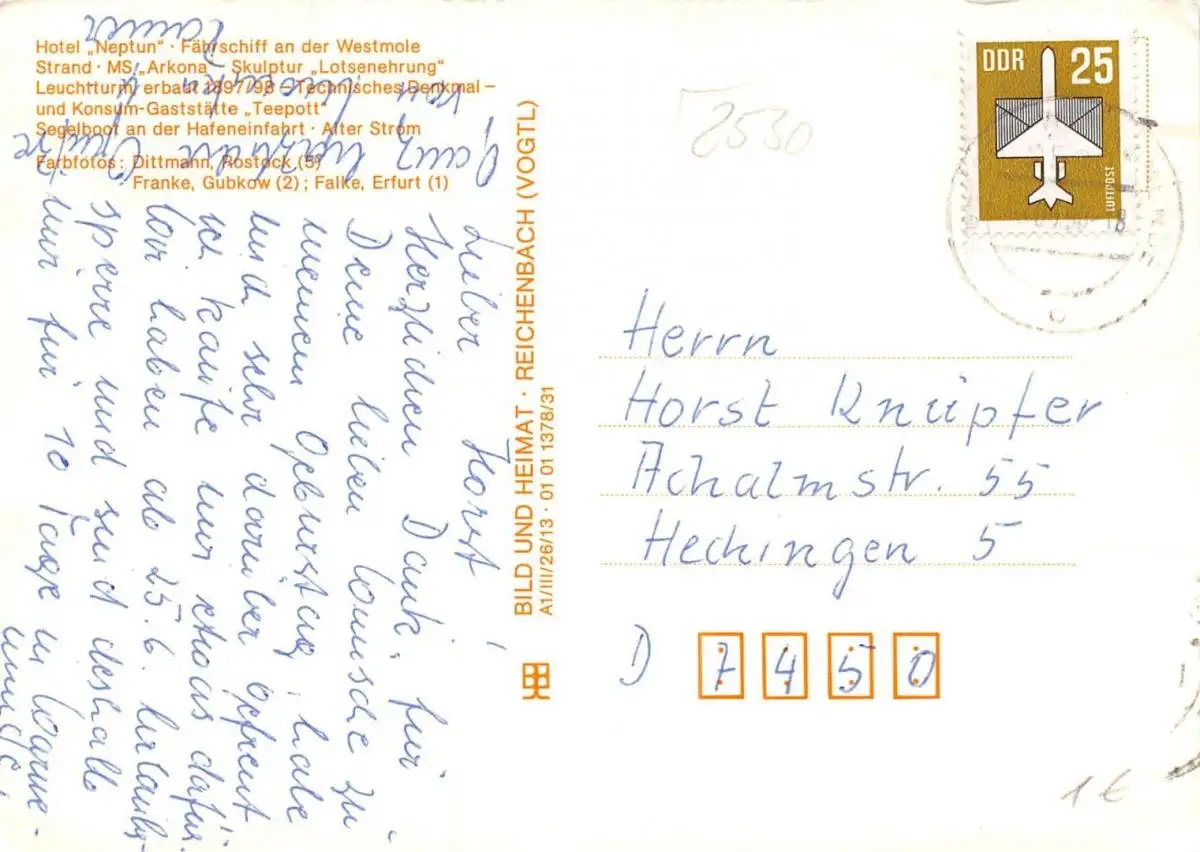 Hotel „Neptun“ · Fährschiff an der Westmole
Strand · MS „Arkona“ · Skulptur „Lotsenehrung“
Leuchtturm, erbaut 1897/98 – Technisches Denkmal –
und Konsum-Gaststätte „Teepott“
Segelboot an der Hafeneinfahrt · Alter Strom
Farbfotos: Dittmann, Rostock (5)
Franke, Gubkow (2); Falke, Erfurt (1)
Lieber Horst!
Herzlichen Dank für
Deine lieben Wünsche zu
meinem Geburtstag, habe
mich sehr darüber gefreut
ich kaufe mir etwas dafür.
Wir haben ab 25.6. Urlaubs-
sperre und sind deshalb
nur für 10 Tage in Warne-
münde.
Ganz herzliche Grüße
von
BILD UND HEIMAT · REICHENBACH (VOGTL)
A1/III/26/13 · 01 01 1378/31
2530
DDR 25
LUFTPOST
Herrn
Horst Knüpfer
Achalmstr. 55
Hechingen 5
D 7450
1 €